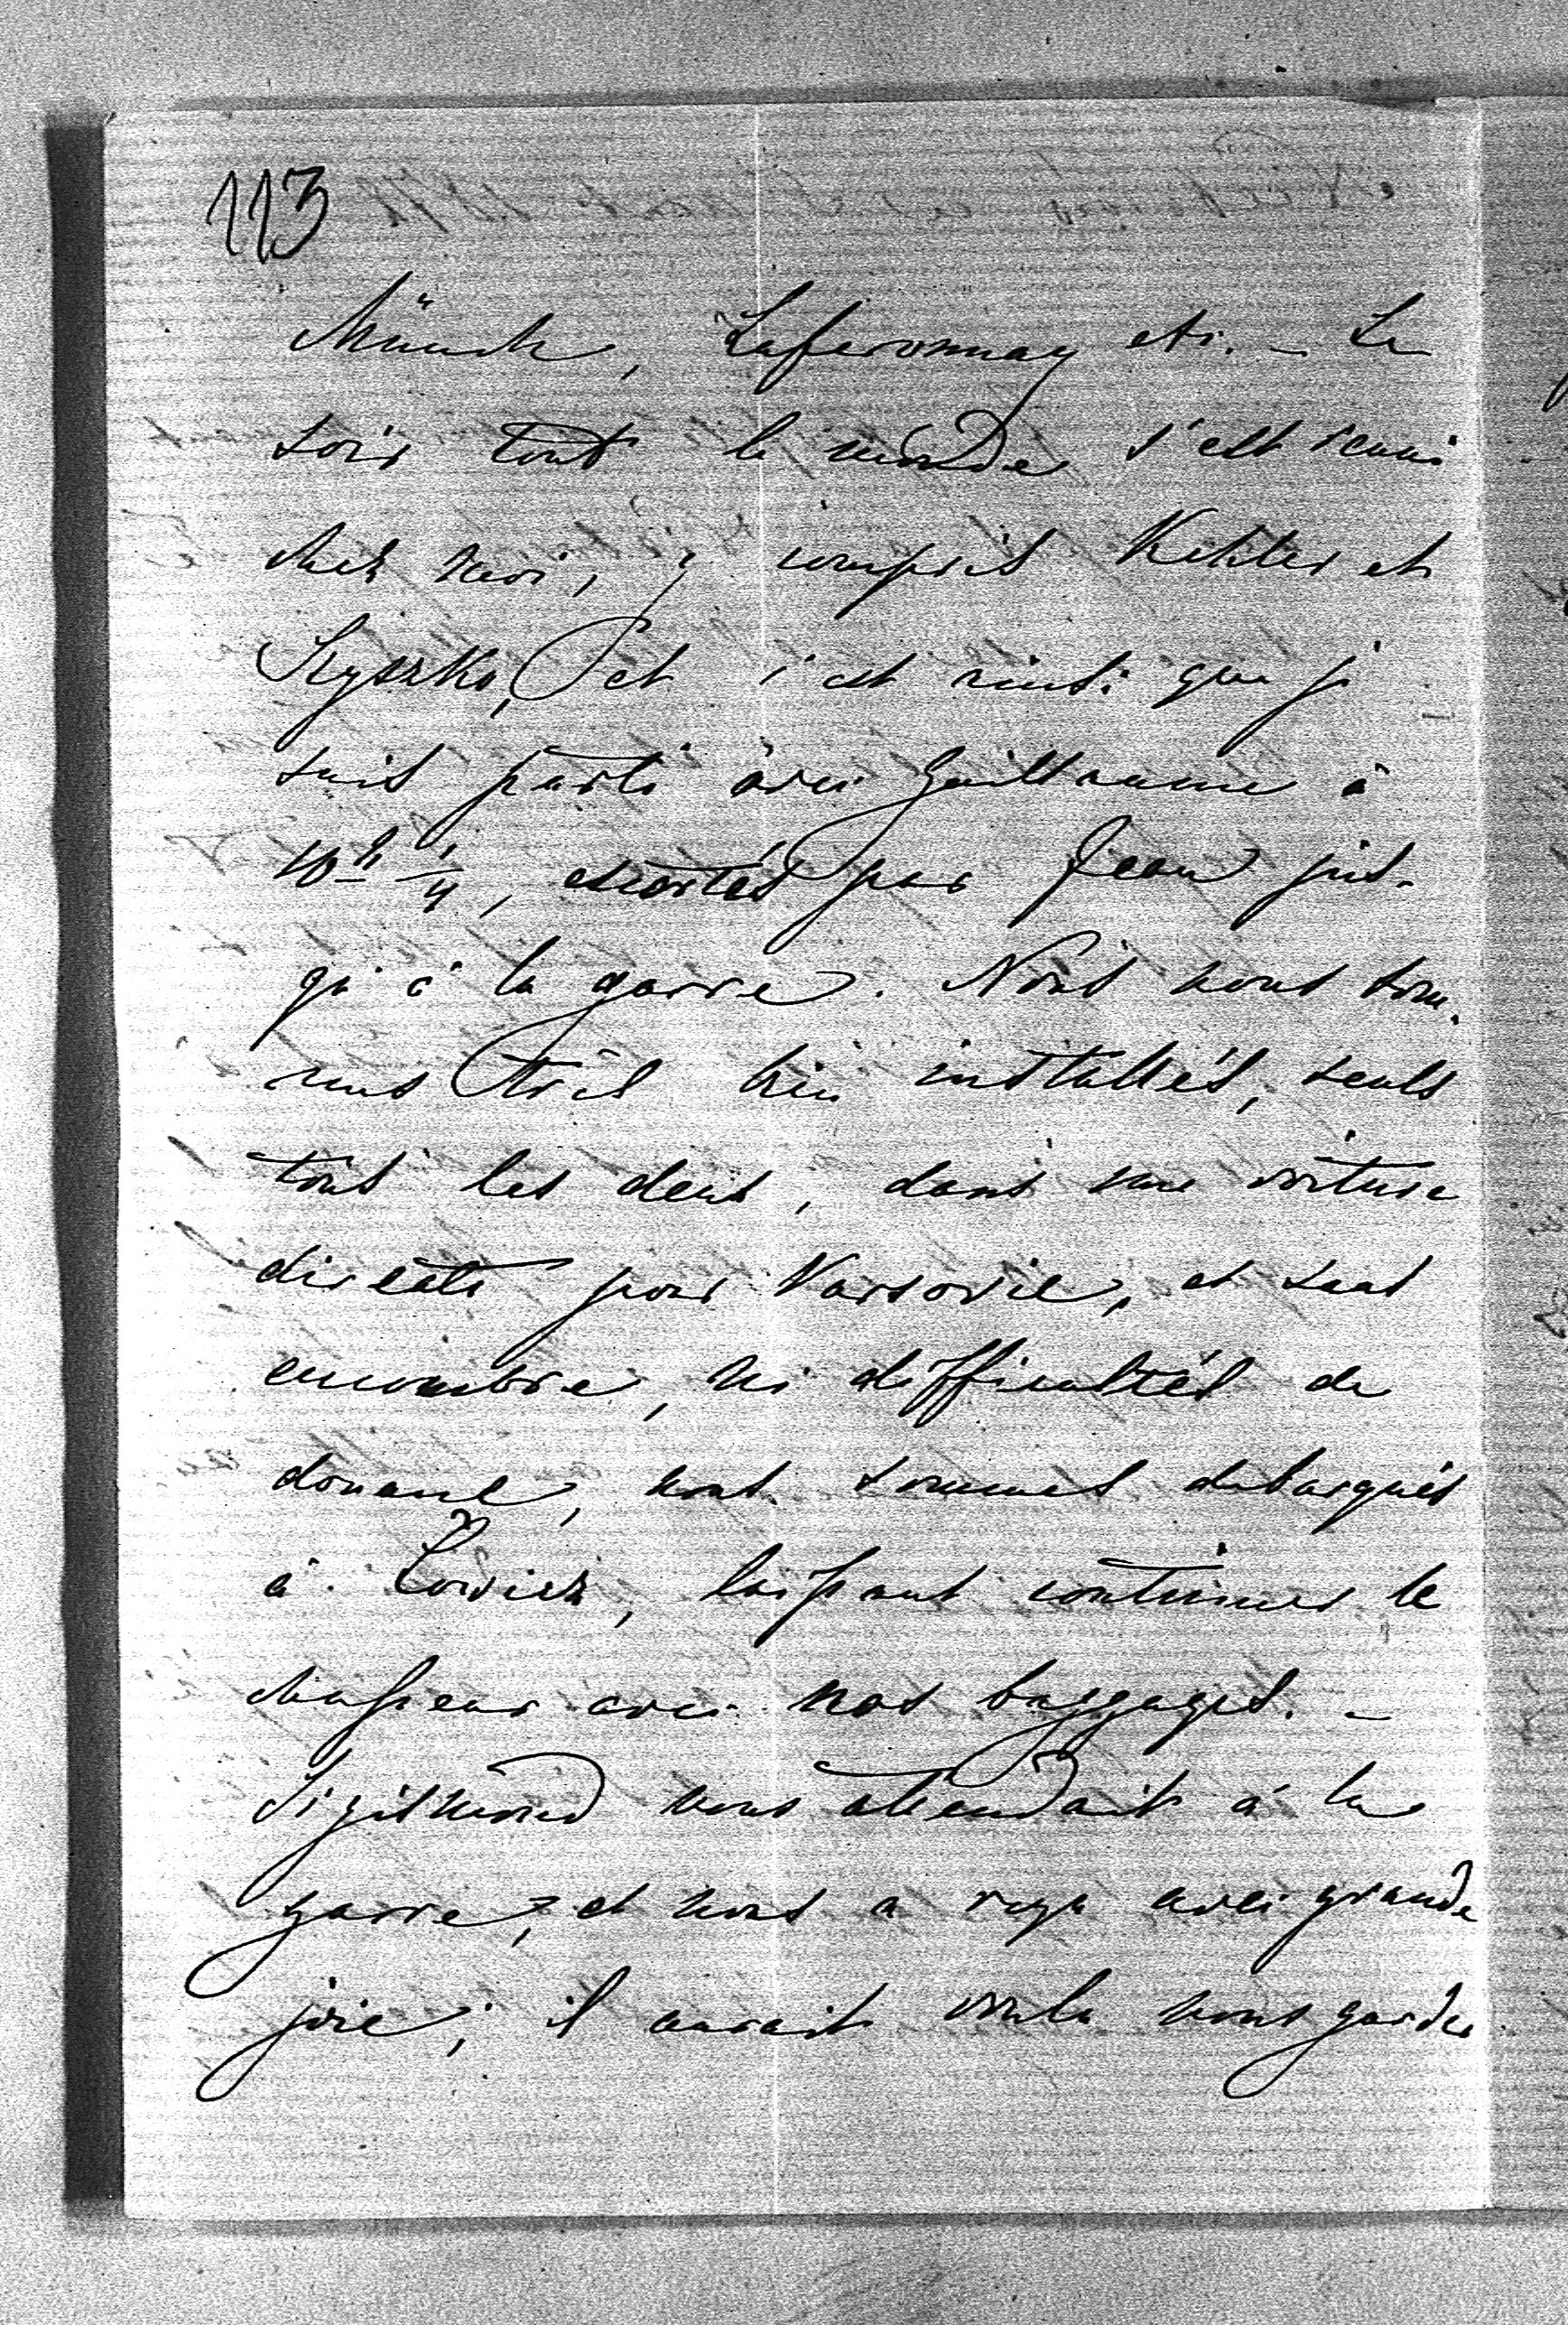 113
Münch, Laferonnay etc. – Le
soir tout le monde s'est reuni
chez moi, y compris Kehler et
Szyszko, et c'est ainsi que je
suis parti avec Guillaume à
10 h 1/4, escortés par Jean jus-
qu'à la garre. Nous nous som-
mes très bien installés, seuls
tous les deux, dans une voiture
directe pour Varsovie, et sans
encombre, ni difficultés de
douane, nous sommes debarqués
à Łowicz, laissant continuer le
chasseur avec nos baggages. –
Sigismond nous attendait à la
garre, et nous a reçu avec grande
joie; il aurait voulu nous garder